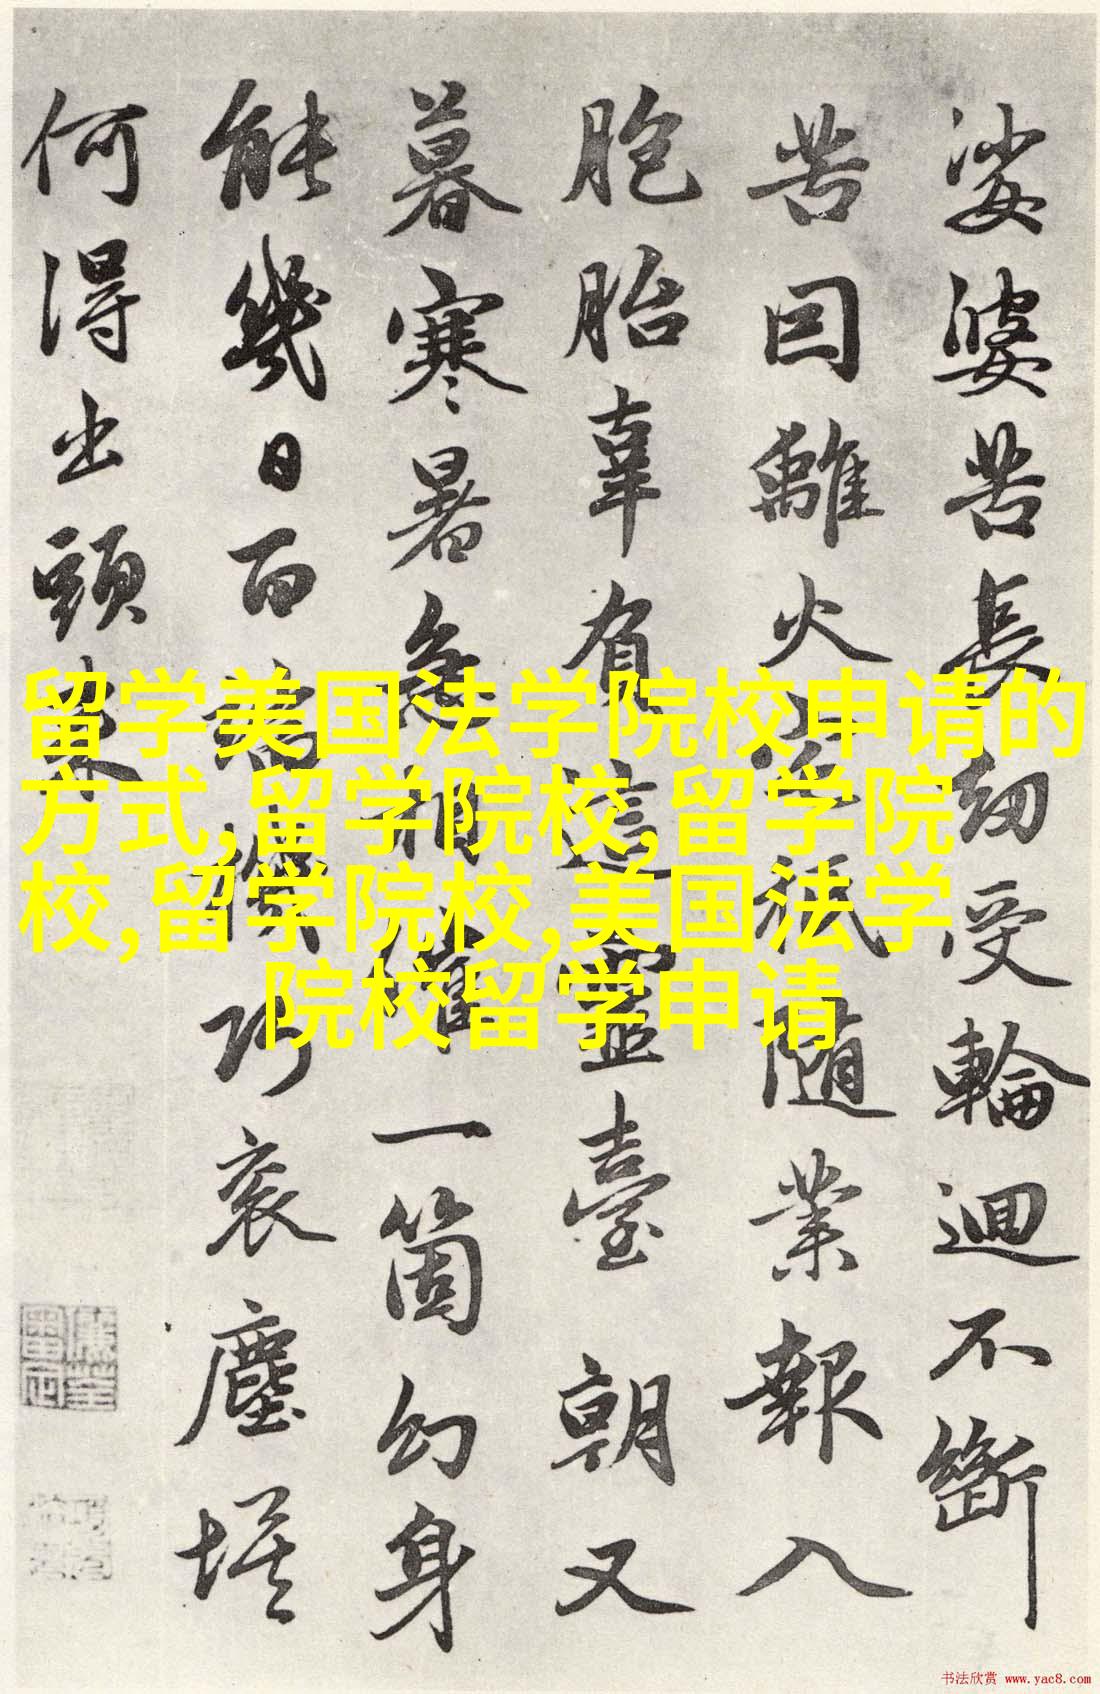 娑婆苦長劫受輪迴不斷
苦因離火
随業報入
胞胎辜有這靈臺朝又
暮寒暑急相催一箇幻身
能幾日百
巧裹塵埃
何得出頭来
留学美国法学院校申请的
方式,留学院校,留学院
校,留学院校,美国法学
院校留学申请
书法欣赏 www.yac8.com